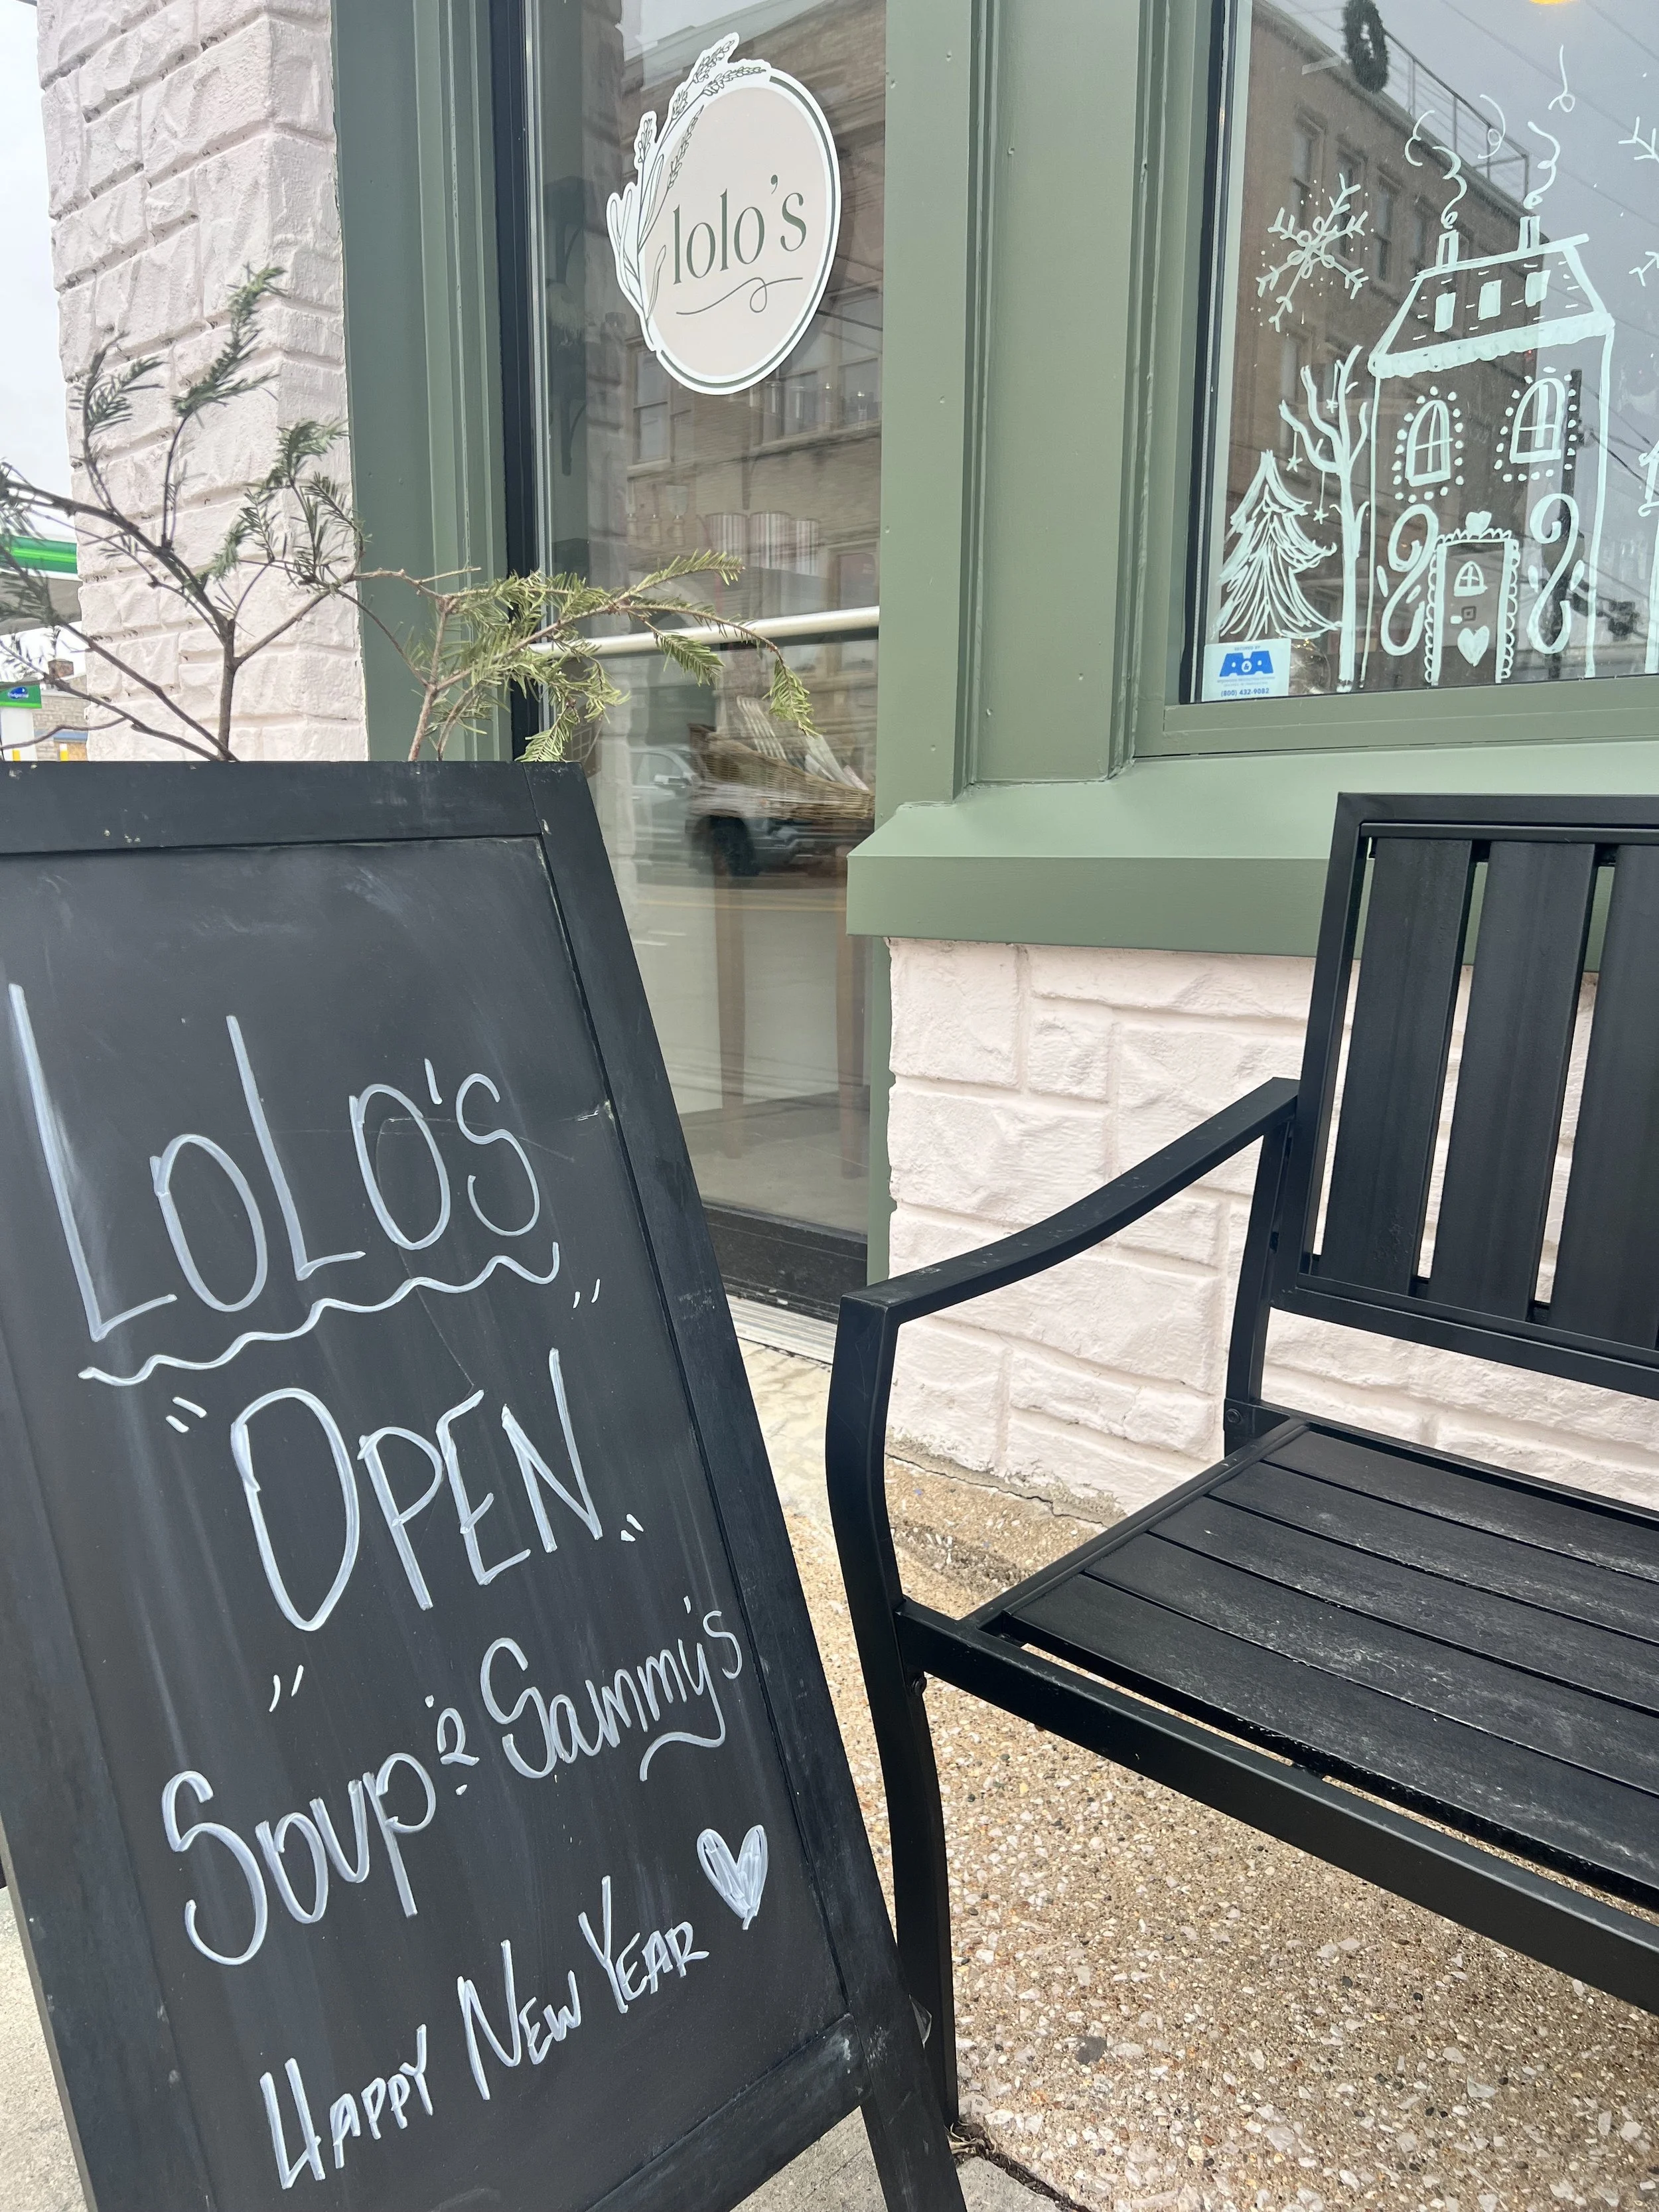 lolo's
A&A
(800) 432-9082
LoLo's
"OPEN"
Soup & Sammy's
HAPPY NEW YEAR